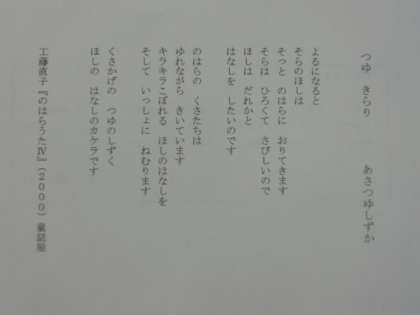 つゆ きらり
あさつゆしずか
よるになると
そらのほしは
そっと のはらに おりてきます
そらは ひろくて さびしいので
ほしは だれかと
はなしを したいのです
のはらの くさたちは
ゆれながら きいています
キラキラこぼれる ほしのはなしを
そして いっしょに ねむります
くさかげの つゆのしずく
ほしの はなしのカケラです
工藤直子『のはらうたⅣ』(2000)童話屋